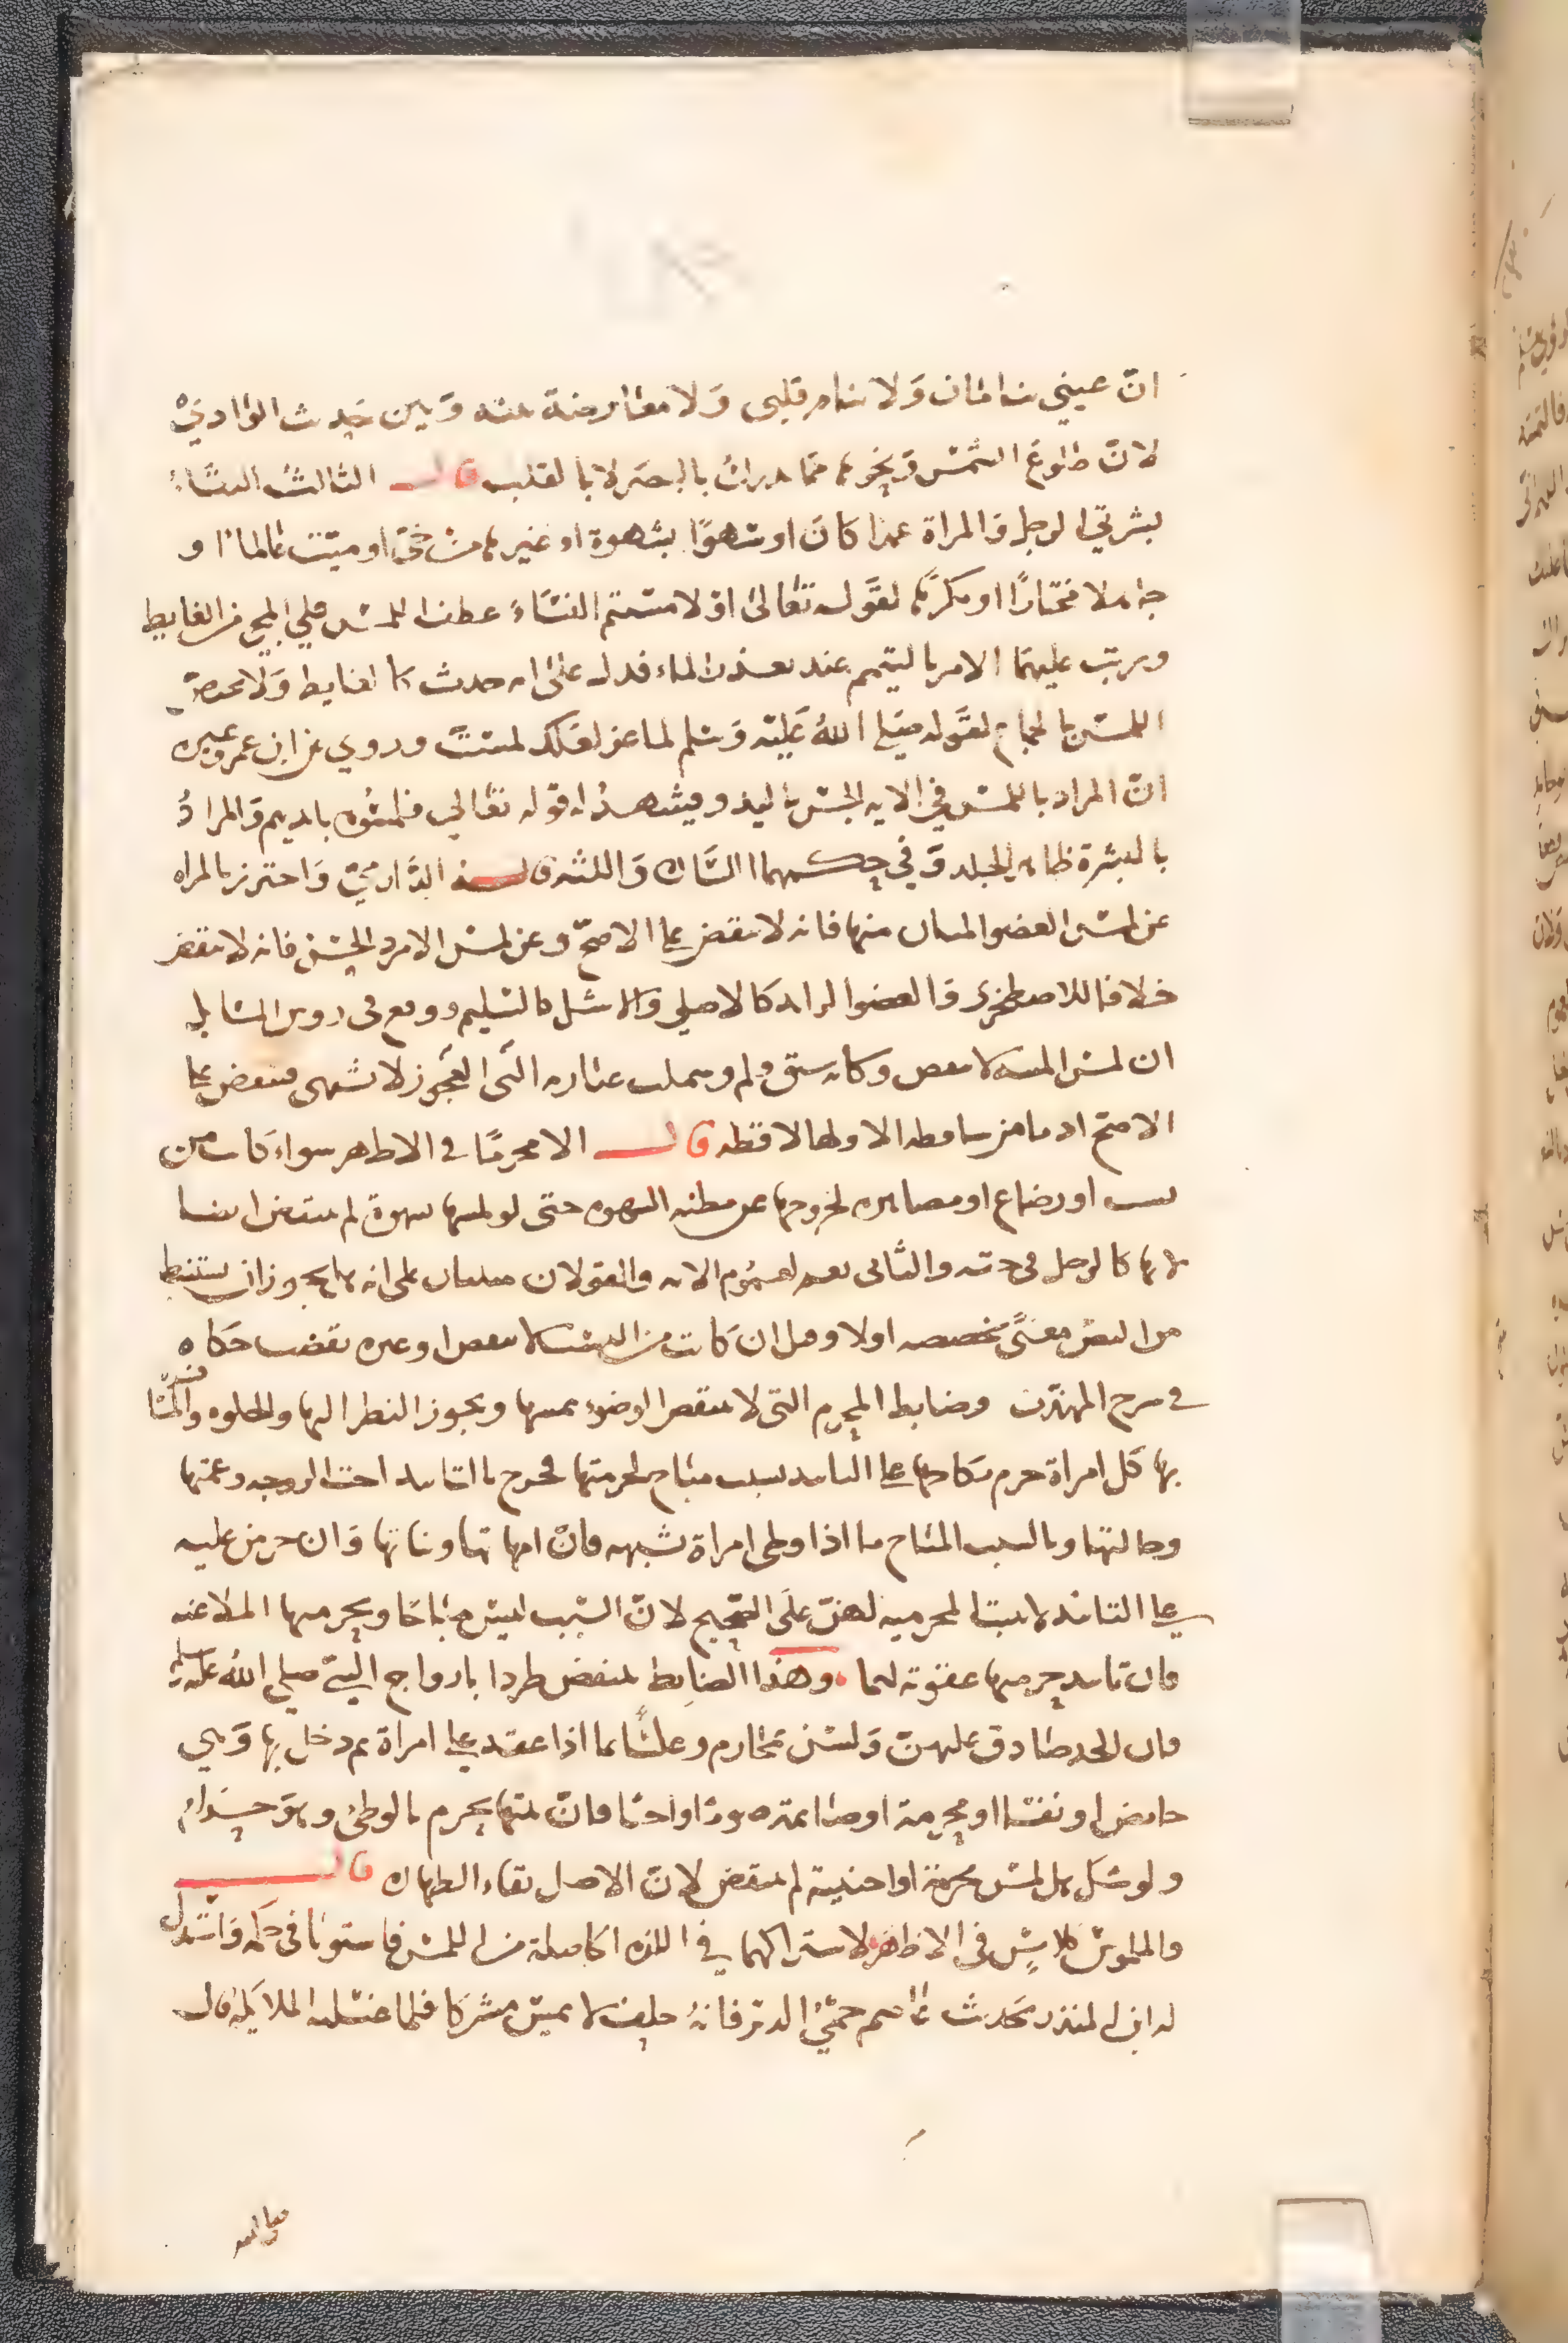 انّ عيني تنامان وَلا ينام قلبى وَلا معَارضة منه وَبين حَديث الوَادي
لانّ طلوع الشمس وَنحوها ممّا يدرك بالبصَر لا بالقلب قال الثالث التقاء
بشرتي الرجل وَالمراة عمدا كانَ او سَهوًا بشهوة او غيرها من حيّ او ميّت عَالما او
جاهلا مختارًا او مكرهًا لقَوله تعَالىٰ او لامستم النسَاء عطف اللمس علي المجي من الغايط
ورتب عليهما الامر بالتيمم عند تعذر الماء فدل علىٰ انه حدث كالغايط وَلا يختص
اللمس بالجماع لقَوله صَلي اللهُ عَليْه وَسلم لماعز لعَلك لمستَ وروي عن ابن عمر وغيره
انّ المراد باللمس في الايه الجس باليد ويشهدُ له قوله تعَالي فلمسُوه بايديهم وَالمرادُ
بالبشرة ظاهر الجلد وَفي حكمهما اللسَان وَاللثه قاله الدَّارميّ وَاحترز بالمراه
عن لمس العضو المبان منها فانه لا ينقض على الاصحّ وعن لمس الامرد الحسَن فانه لا ينقض
خلافا للاصطخرى وَالعضو الزايد كالاصلي وَالاشل كالسليم ووقع فى روس المسَايل
ان لمس الميته لا ينقض وكانه سبق قلم وشملت عبَارته التَى العَجُوز لا تشتهى فينقض على
الاصح اذ ما من ساقطه الا ولها لاقطه قال الا محرمًا فى الاظهر سواء كانت من
نسب او رضاع او مصاهره لخروجها عن مظنه الشهوه حتى لو لمسها بشهوة لم ينتقض ايضا
لانها كالرجل فى حقه والثانى نعم لعمُوم الايه والقولان مبنيان على انه هل يجوز ان يستنبط
من النص معنًى يخصصه اولا وقيل ان كانت من النسب لا ينقض او غيره نقضت حَكاه
فى شرح المهذّب وضابط المحرم التى لا ينتقض الوضوء بمسها ويجوز النظر اليها والخلوه والمسَافره
بها كل امراة حرم نكاحها على التابيد بسبب مبَاح لحرمتها فخرج بالتابيد اخت الزوجه وعمتها
وخالتها وبالسبب المبَاح ما اذا وطى امراة بشبهه فانّ امهاتها وبناتها وَان حرمن عليه
على التابيد لا يثبت المحرميه لهنّ علَى الصّحيح لانّ السَبب ليس مبَاحًا وبحرمتها الملاعنه
فان تابيد تحريمها عقوبَة لهما وهَذا الضابِط ينتقض طردا بازواج النبيّ صلي اللهُ عليه وسلم
فان الحد صَادق عليهنّ وَلسن محَارم وعكسًا بما اذا عقد على امراة ثم دخل بها وَهي
حايض او نفسَا او محرمة او صَايمة صومًا واجبًا فانّ بنتها يحرم بالوطئ وهوَ حَرام
ولو شك هل لمس محرمة او اجنبيّة لم ينتقض لانّ الاصل بقاء الطهاره قال
والملموس كلامِس في الاظهر لاشتراكهما في اللذه الحاصلة من اللمس فاستويَا فى حكمه وَاستدل
له ابن المنذر بحَديث عَاصم حميّ الدبر فانهُ حلف لا يمسّ مشركا فلما غسَلته الملايكه قال